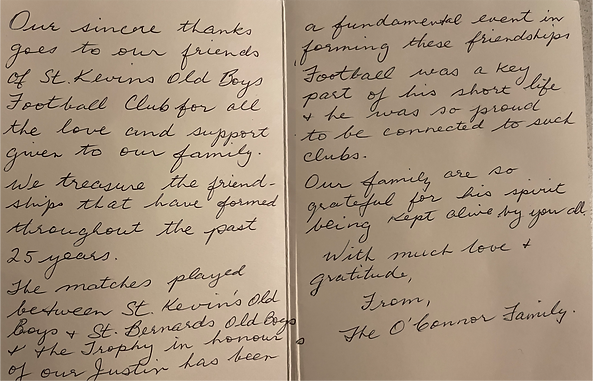 Our sincere thanks
goes to our friends
of St. Kevins Old Boys
Football Club for all
the love and support
given to our family.
We treasure the friend-
ships that have formed
throughout the past
25 years.
The matches played
between St. Kevin's Old
Boys + St. Bernards Old Boys
+ the Trophy in honour
of our Justin has been
a fundamental event in
forming these friendships
Football was a key
part of his short life
+ he was so proud
to be connected to such
clubs.
Our family are so
grateful for his spirit
being kept alive by you all.
With much love +
gratitude,
From,
The O'Connor Family.